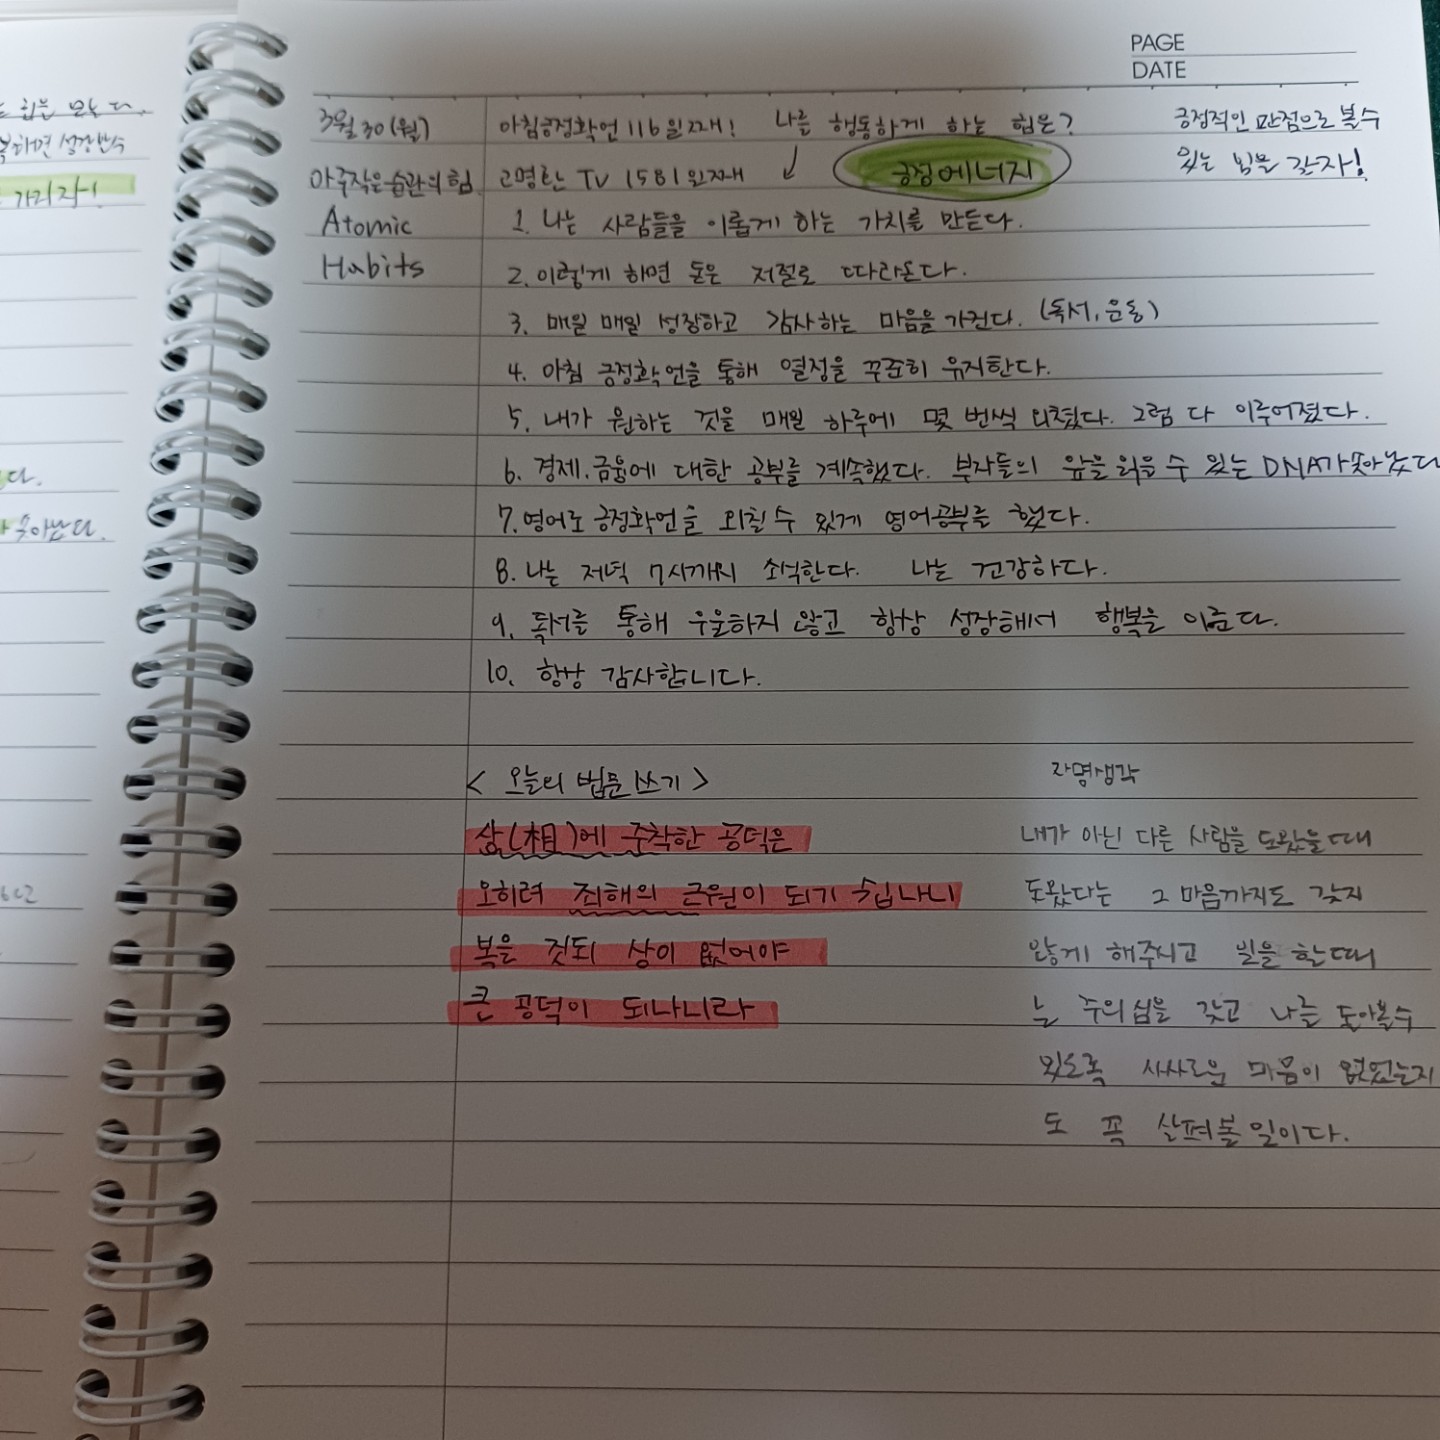 PAGE
DATE
3월 30(월)
아침긍정확언 116일째! 나를 행동하게 하는 힘은? 긍정적인 관점으로 볼수
아주작은 습관의 힘 고명환 TV 1581일째 ↓ 긍정에너지 있는 힘을 갖자!
Atomic 1. 나는 사람들을 이롭게 하는 가치를 만든다.
Habits 2. 이렇게 하면 돈은 저절로 따라온다.
3. 매일 매일 성장하고 감사하는 마음을 가진다. (독서, 운동)
4. 아침 긍정확언을 통해 열정을 꾸준히 유지한다.
5. 내가 원하는 것을 매일 하루에 몇 번씩 외쳤다. 그럼 다 이루어졌다.
6. 경제.금융에 대한 공부를 계속했다. 부자들의 앞을 읽을 수 있는 DNA가 솟아났다
7. 영어로 긍정확언을 외칠 수 있게 영어공부를 했다.
8. 나는 저녁 7시까지 소식한다. 나는 건강하다.
9. 독서를 통해 우울하지 않고 항상 성장해서 행복을 이룬다.
10. 항상 감사합니다.
< 오늘의 법문쓰기 > 자명생각
상(相)에 주착한 공덕은 내가 아닌 다른 사람을 도왔을때
오히려 죄해의 근원이 되기 쉽나니 도왔다는 그 마음까지도 갖지
복을 짓되 상이 없어야 않게 해주시고 일을 할때
큰 공덕이 되나니라 는 주의심을 갖고 나를 돌아볼수
있도록 사사로운 마음이 없었는지
도 꼭 살펴볼 일이다.
힘을
하면 성장
가지자!
다.
솟아난다.